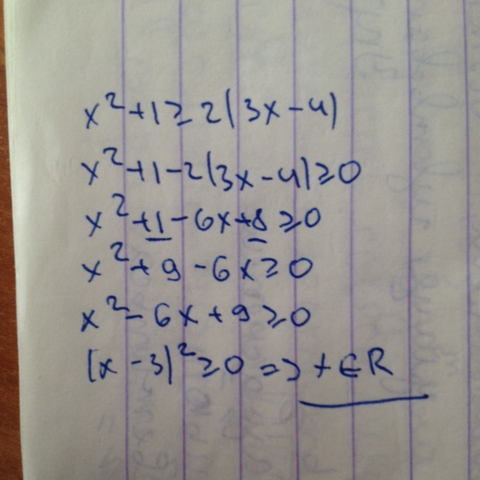 x² + 1 ≥ 2(3x - 4)
x² + 1 - 2(3x - 4) ≥ 0
x² + 1 - 6x + 8 ≥ 0
x² + 9 - 6x ≥ 0
x² - 6x + 9 ≥ 0
(x - 3)² ≥ 0 => x ∈ R